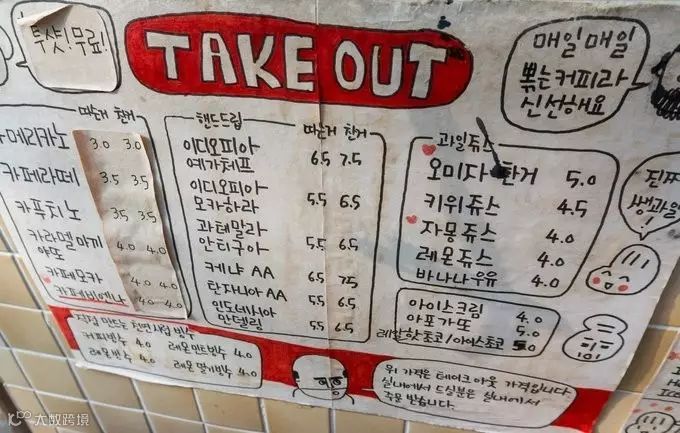 투샷! 무료!
TAKE OUT
매일매일
뽑는커피라
신선해요
따는거 찬거
아메리카노 3.0 3.0
카페라떼 3.5 3.5
카푸치노 3.5 3.5
카라멜마끼
야또 4.0 4.0
카페모카 4.0 4.0
카페비엔나 4.0 4.0
핸드드립 따는거 찬거
이디오피아
예가체프 6.5 7.5
이디오피아
모카하라 5.5 6.5
과테말라
안티구아 5.5 6.5
케냐 AA 6.5 7.5
탄자니아 AA 5.5 6.5
인도네시아
만델링 5.5 6.5
과일쥬스
오미자 찬거 5.0
키위쥬스 4.5
자몽쥬스 4.0
레몬쥬스 4.0
바나나우유 4.0
진짜
생과일!
아이스크림 4.0
아포가또 5.0
레알핫쵸코/아이스쵸코 5.0
직접 만드는 빙수
커피빙수 4.0 레몬민트빙수 4.0
레몬빙수 4.0 레몬딸기빙수 4.0
위 가격은 테이크아웃 가격입니다.
실내에서 드실분은 실내에서
주문 받습니다.
大数跨境